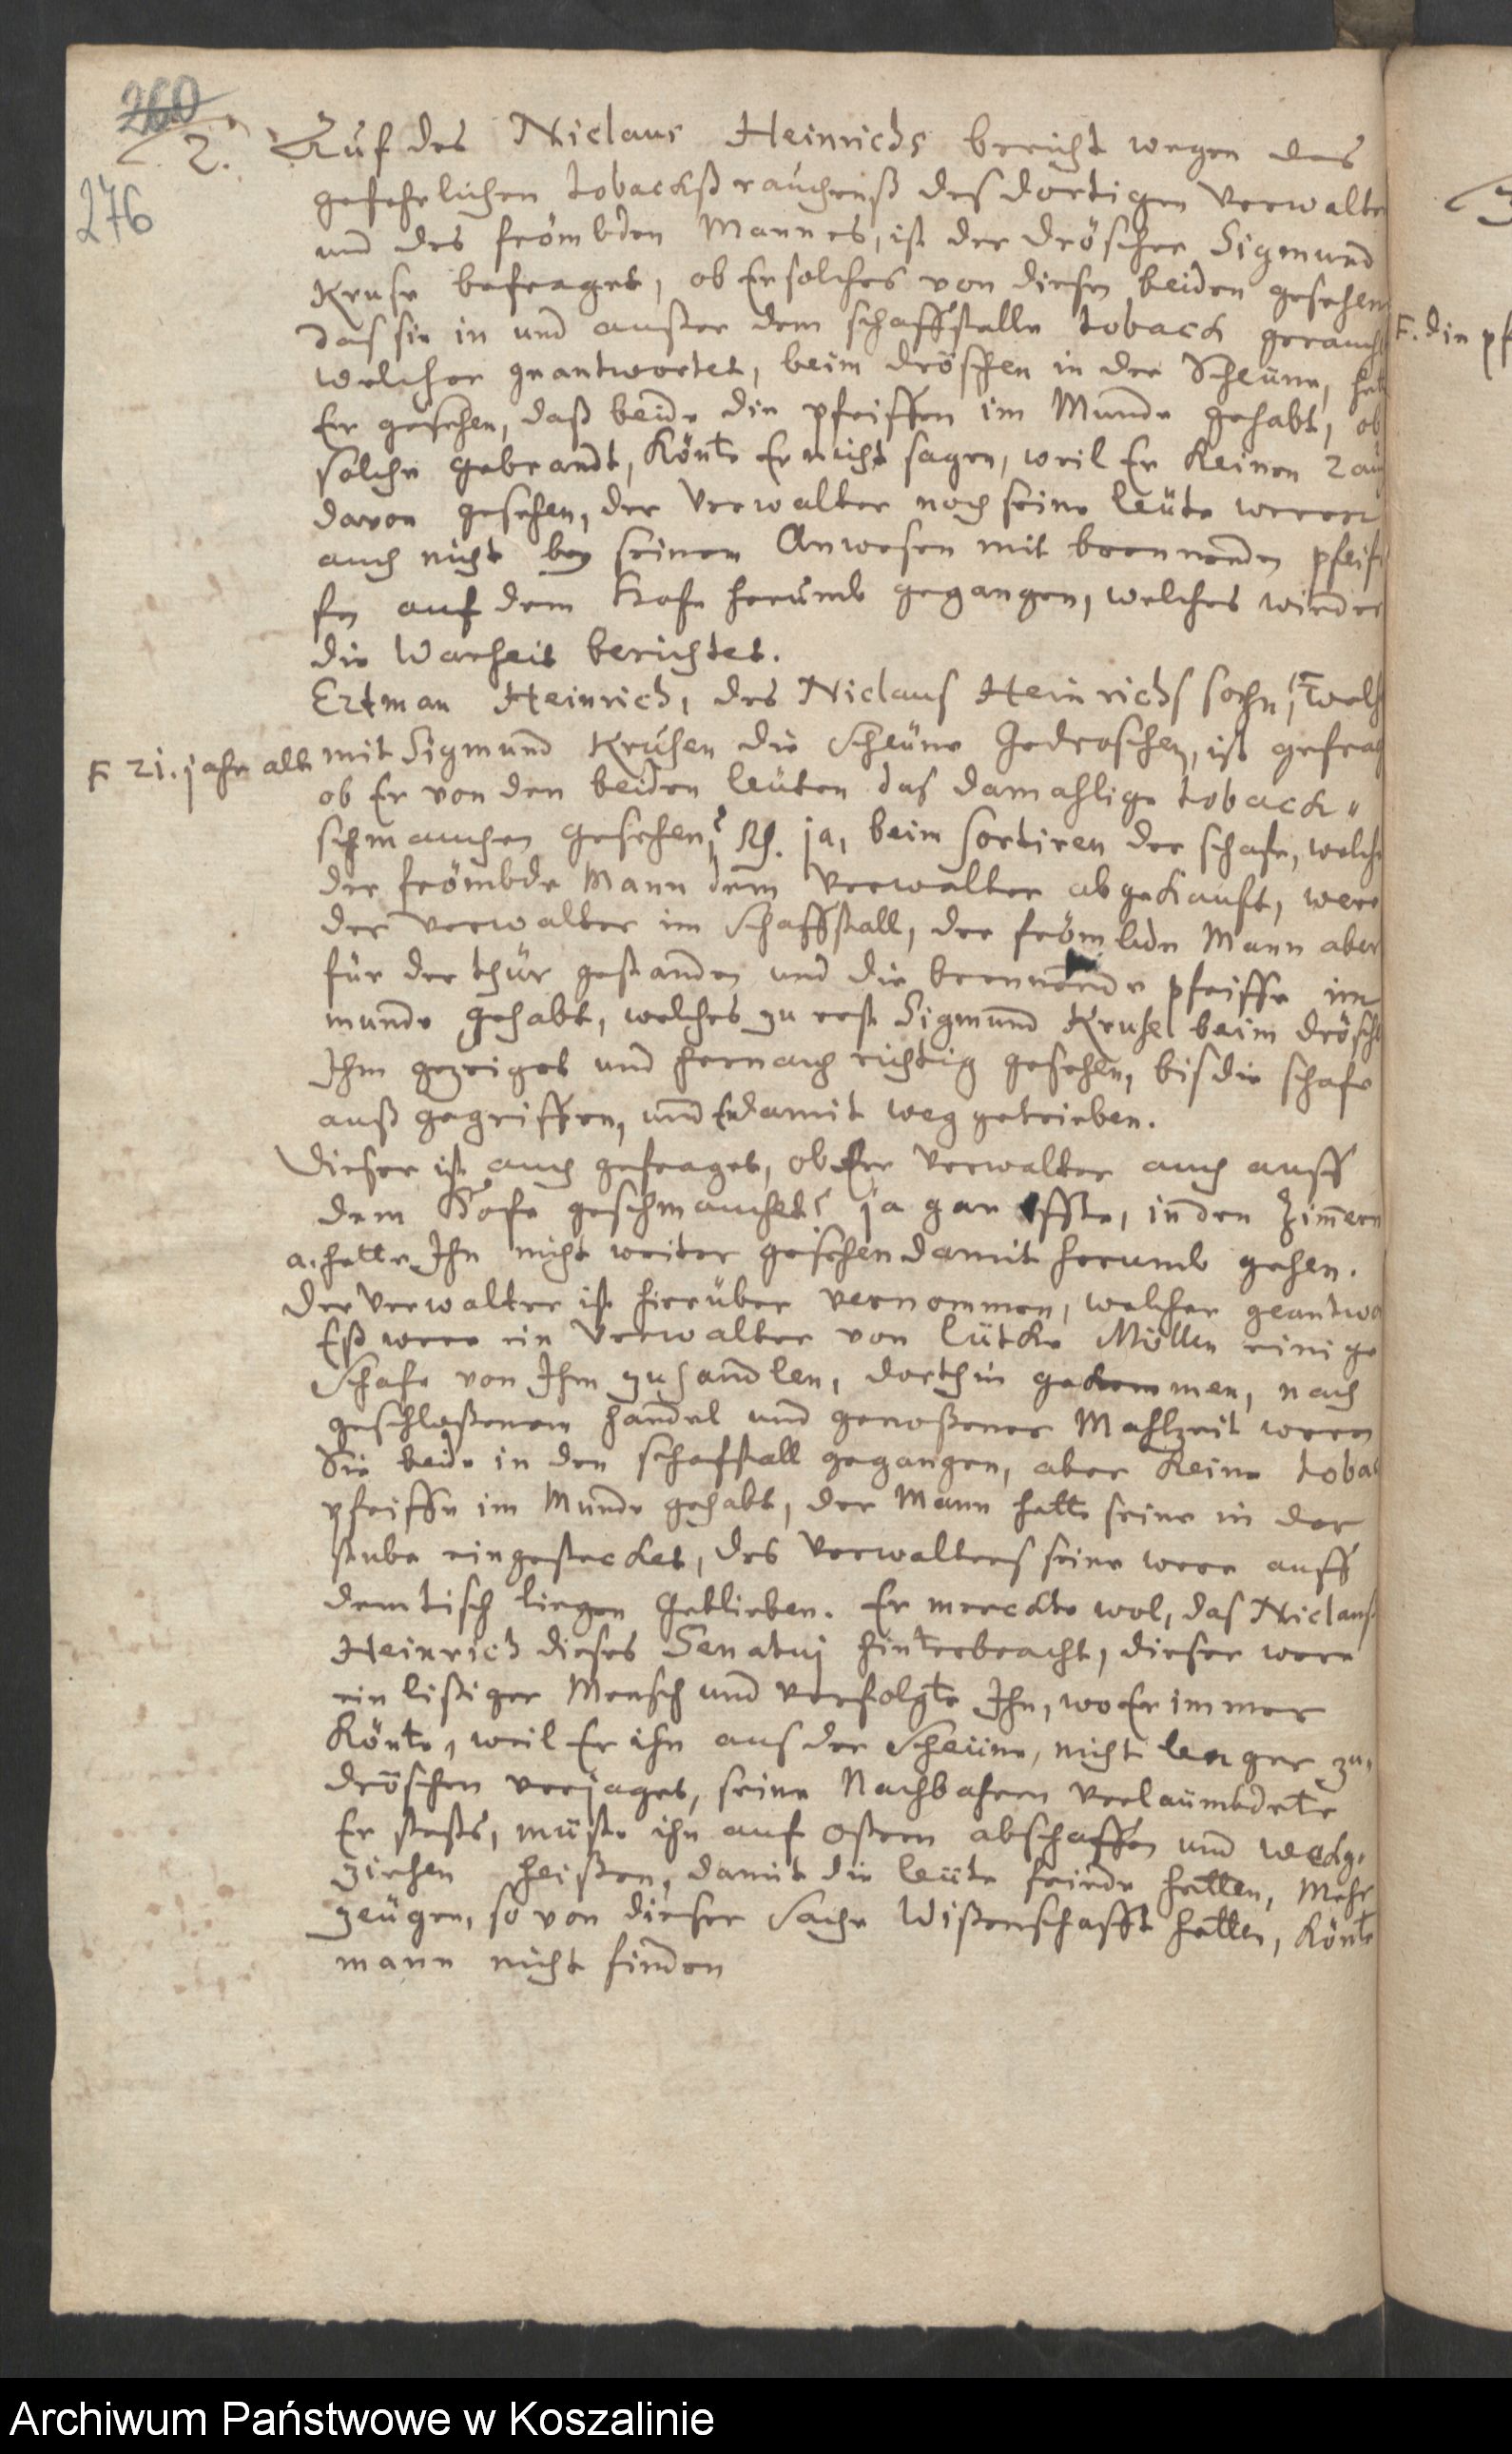 260
2.
276
Auf des Niclaus Heinrichs bericht wegen des
gefehrlichen tobackßrauchenß des dortigen Verwalte
und des frömbden Mannes, ist der dröscher Sigmund
Kruse befraget, ob Er solches von diesen beiden gesehen
das sie in und außer dem schaffstalle toback gerauch
welcher geantwortet, beim dröschen in der Scheüne, hett
Er gesehen, daß beide die pfeiffen im Munde gehabt, ob
solche gebrandt, Könte Er nicht sagen, weil Er Keinen Rau
davon gesehen, der Verwalter noch seine leüte weren
auch nicht bey seinem Anwesen mit brennenden pfeif
fen auf dem Hofe herumb gegangen, welches wieder
die Warheit berichtet.
Ertman Heinrich, des Niclaus Heinrichs sohn, F welch
F 21. jahr alt
mit Sigmund Krusen die Scheüne Gedroschen, ist gefrag
ob Er von den beiden leüten das damahlige toback
schmauchen gesehen? Rs. ja, beim sortiren der schafe, welche
der frömbde Mann dem Verwalter abgekauft, were
der Verwalter im Schaffstall, der frömbde Mann aber
für der thür gestanden und die brennende pfeiffe im
munde gehabt, welches zu erst Sigmund Kruse beim drösch
Ihm gezeiget und hernach richtig gesehen, bis die schafe
auß gegriffen, und Er damit weg getrieben.
Dieser ist auch gefraget, ob der Verwalter auch auff
dem Hofe geschmauchet? ja gar offte, in den Zimmern
a. hette Ihn nicht weiter gesehen damit herumb gehen.
Der Verwalter ist hierüber vernommen, welcher geantwo
Eß were ein Verwalter von lütcke Möllen einige
Schafe von Ihm zuhandlen, dorthin gekommen, nach
geschloßenem handel und genoßener Mahlzeit weren
Sie beide in den schafstall gegangen, aber Keine tobac
pfeiffe im Munde gehabt, der Mann hette seine in der
stube eingestecket, des Verwalters seine were auff
dem tisch liegen Geblieben. Er merckte wol, das Niclaus
Heinrich dieses Senatui hinterbracht, dieser were
ein listiger Mensch und verfolgte Ihn, wo Er immer
Könte, weil Er ihn aus der Scheüne, nicht lenger zu
dröschen verjaget, seine Nachbahren verleümbdete
Er stets, müste ihn auf ostern abschaffen und weg
ziehen heißen, damit die leüte friede hetten, Mehr
zeügen, so von dieser Sache Wißenschafft hetten, Könte
mann nicht finden
F. die
Archiwum Państwowe w Koszalinie